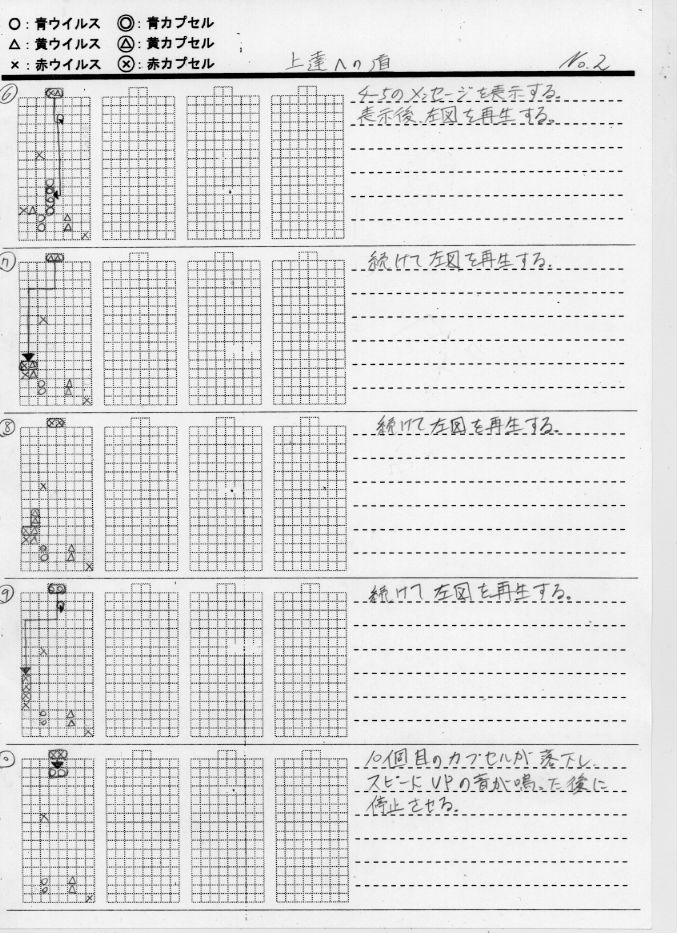 ○：青ウイルス ◎：青カプセル
△：黄ウイルス Ⓐ：黄カプセル
×：赤ウイルス ⓧ：赤カプセル
上達への道
No.2
⑥
4-5のメッセージを表示する。
表示後、左図を再生する。
⑦
続けて左図を再生する。
⑧
続けて左図を再生する。
⑨
続けて左図を再生する。
10個目のカプセルが落下し
スピードUPの音が鳴った後に
停止させる。